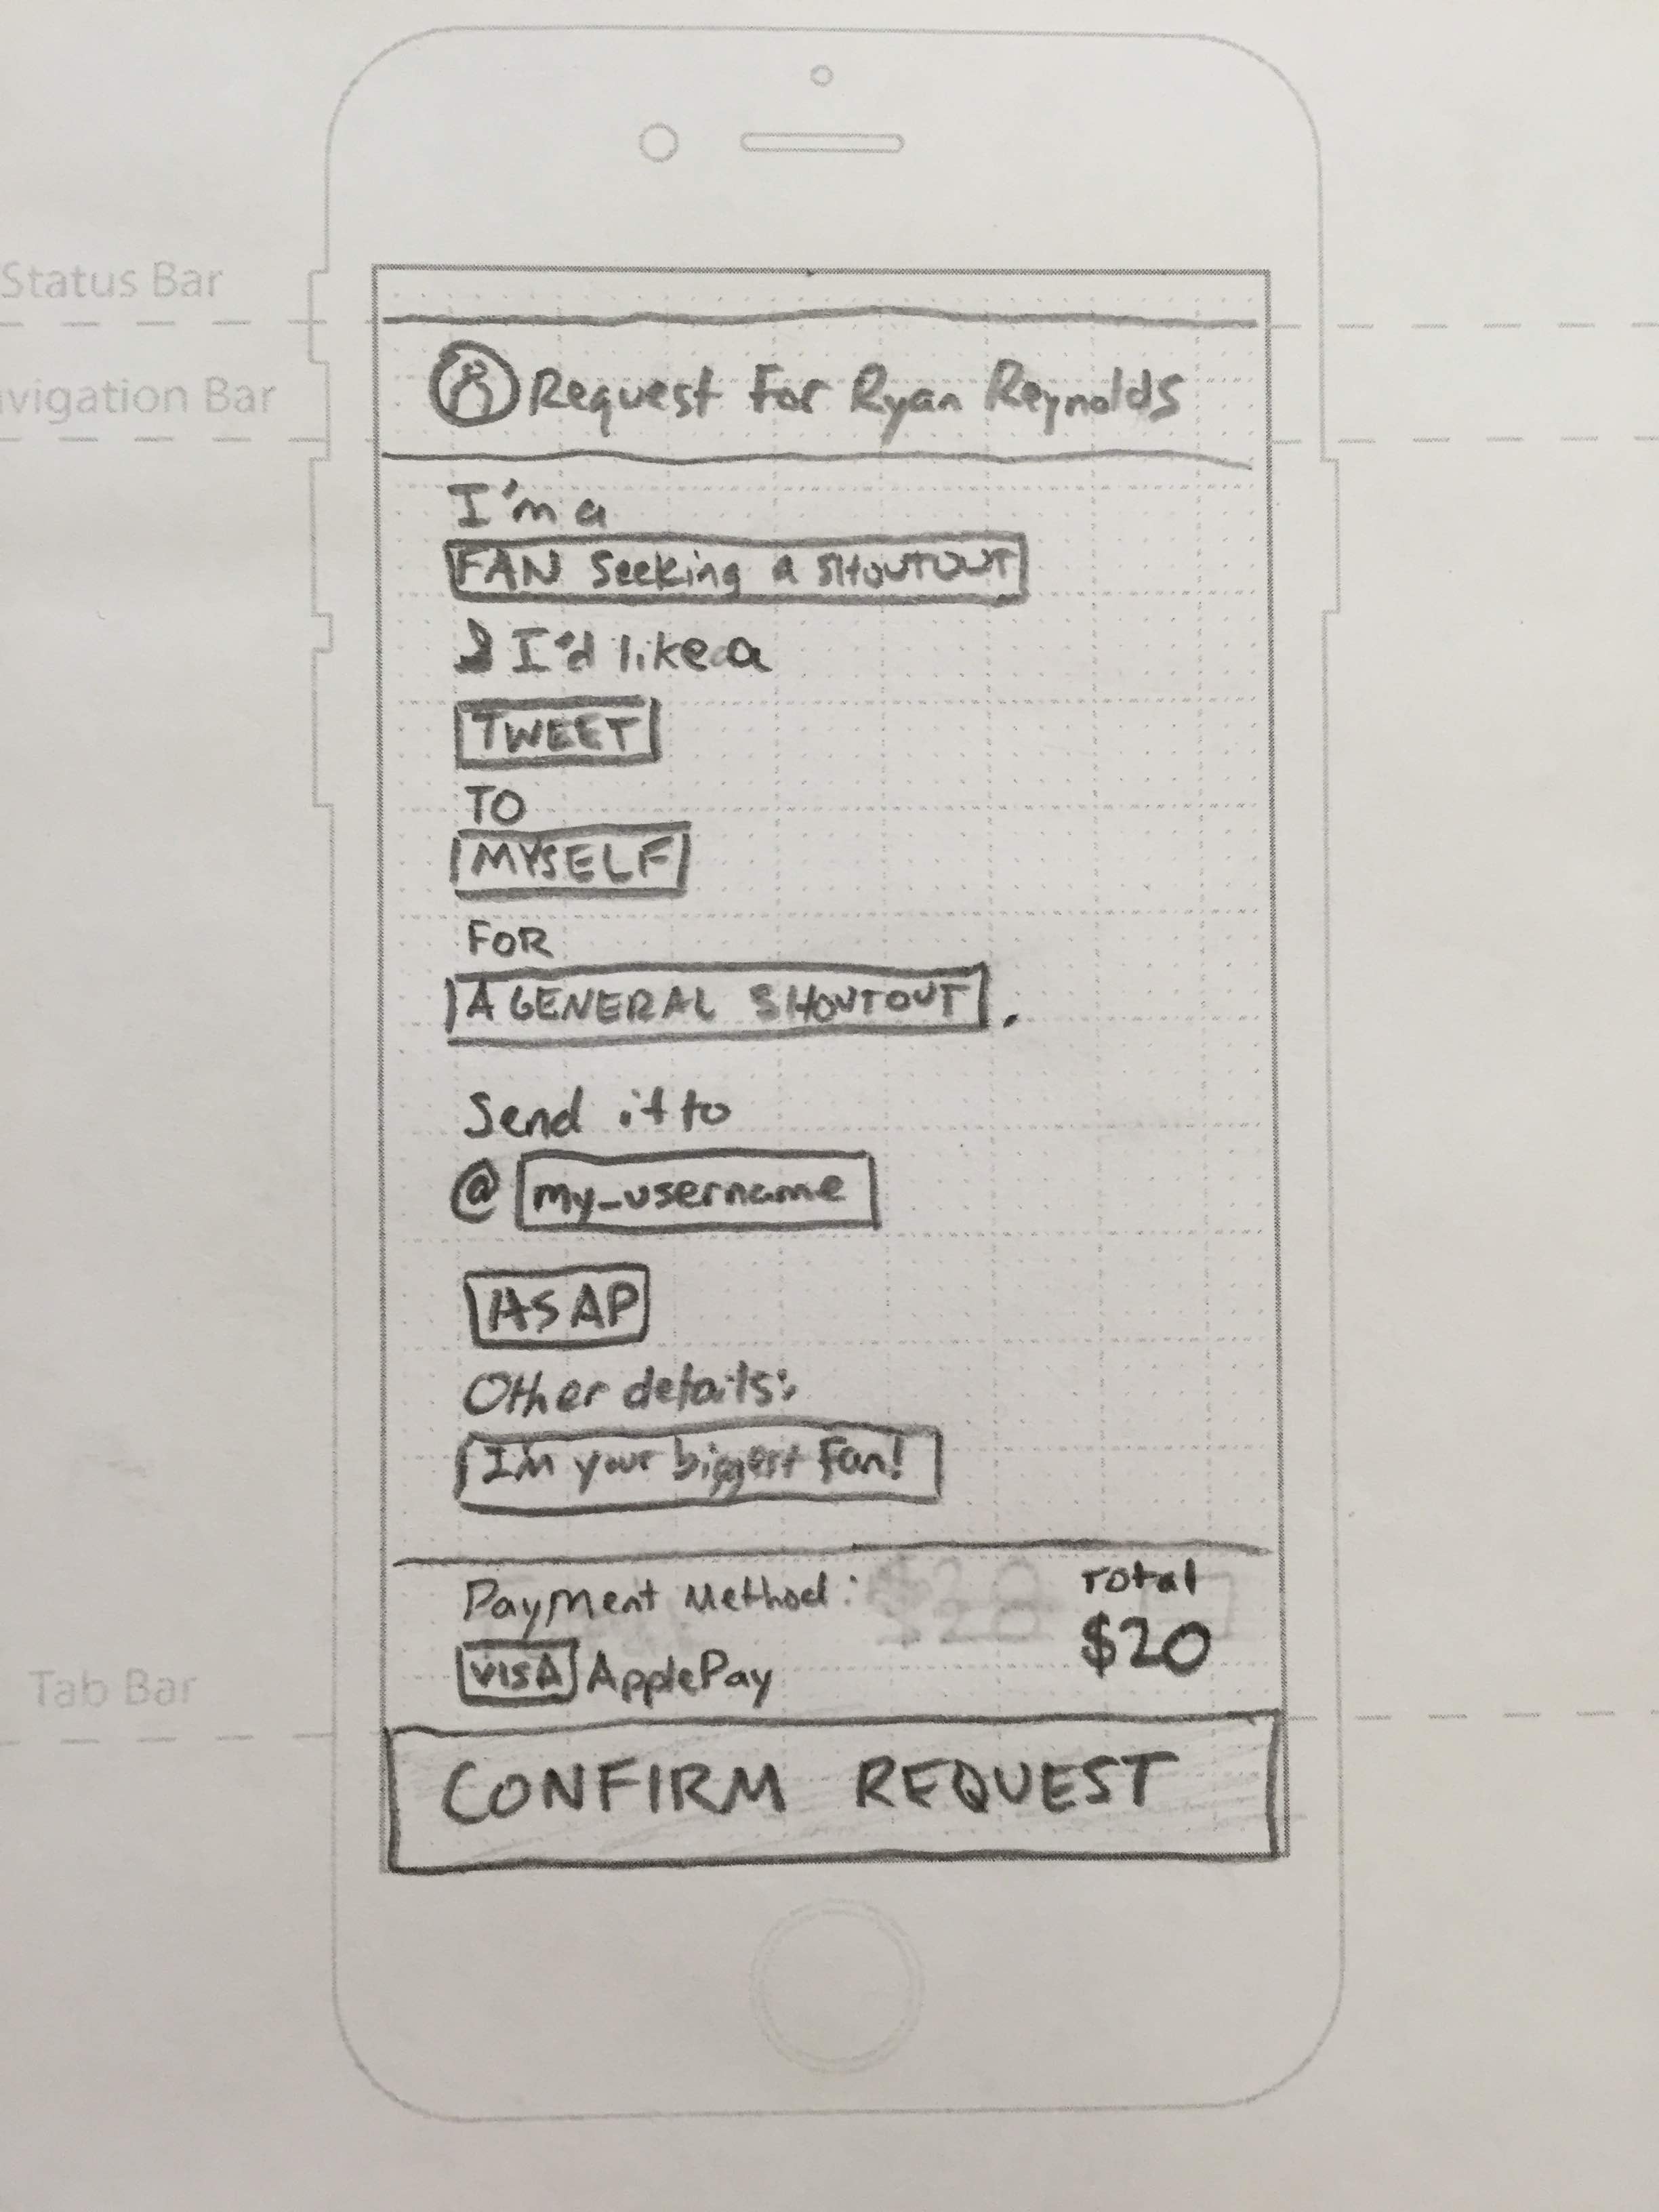 Status Bar
avigation Bar
Request For Ryan Reynolds
I'm a
FAN Seeking a SHOUTOUT
I'd like a
TWEET
TO
MYSELF
FOR
A GENERAL SHOUTOUT.
Send it to
@ my_username
ASAP
Other details:
I'm your biggest fan!
Payment Method:
Total
$20
VISA ApplePay
Tab Bar
CONFIRM REQUEST